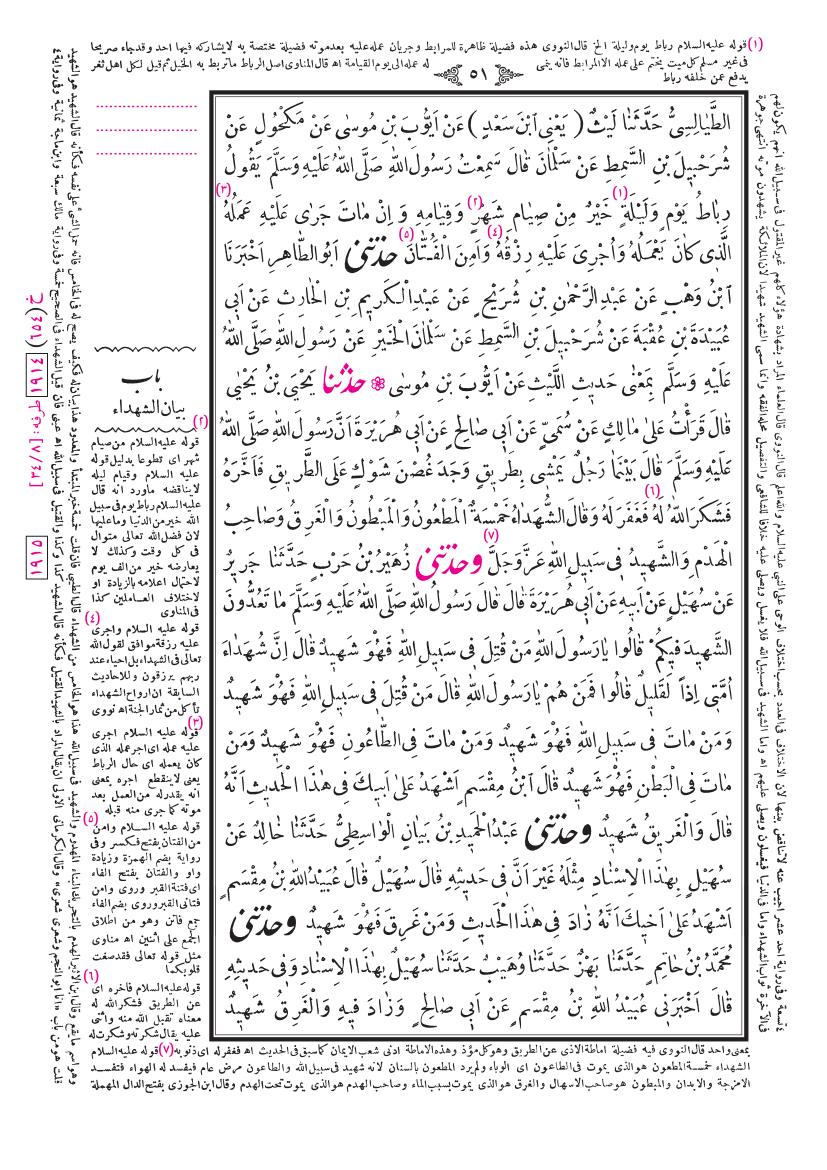 (١) قوله عليه السلام رباط يوم وليلة الخ قال النووى هذه فضيلة ظاهرة للمرابط وجريان عمله عليه بعد موته فضيلة مختصة به لا يشاركه فيها احد وقد جاء صريحا
فى غير مسلم كل ميت يختم على عمله الا المرابط فانه ينمى
له عمله الى يوم القيامة اه قال المناوى اصل الرباط ما تربط به الخيل ثم قيل لكل اهل ثغر
يدفع عمن خلفه رباط
٥١
الطَّيَالِسِىُّ حَدَّثَنَا لَيْثٌ ( يَعْنِى ابْنَ سَعْدٍ ) عَنْ اَيُّوبَ بْنِ مُوسٰى عَنْ مَكْحُولٍ عَنْ
شُرَحْبِيلَ بْنِ السَّمِطِ عَنْ سَلْمَانَ قَالَ سَمِعْتُ رَسُولَ اللهِ صَلَّى اللهُ عَلَيْهِ وَسَلَّمَ يَقُولُ
رِبَاطُ يَوْمٍ وَلَيْلَةٍ (١) خَيْرٌ مِنْ صِيَامِ شَهْرٍ (٢) وَقِيَامِهِ وَ اِنْ مَاتَ جَرٰى عَلَيْهِ عَمَلُهُ (٣)
الَّذِى كَانَ يَعْمَلُهُ وَاُجْرِىَ عَلَيْهِ رِزْقُهُ (٤) وَاَمِنَ الْفُتَّانَ (٥) حَدَّثَنِى اَبُو الطَّاهِرِ اَخْبَرَنَا
ابْنُ وَهْبٍ عَنْ عَبْدِ الرَّحْمٰنِ بْنِ شُرَيْحٍ عَنْ عَبْدِ الْكَرِيمِ بْنِ الْحَارِثِ عَنْ اَبِى
عُبَيْدَةَ بْنِ عُقْبَةَ عَنْ شُرَحْبِيلَ بْنِ السَّمِطِ عَنْ سَلْمَانَ الْخَيْرِ عَنْ رَسُولِ اللهِ صَلَّى اللهُ
عَلَيْهِ وَسَلَّمَ بِمَعْنٰى حَدِيثِ اللَّيْثِ عَنْ اَيُّوبَ بْنِ مُوسٰى ❁ حَدَّثَنَا يَحْيَى بْنُ يَحْيٰى
قَالَ قَرَأْتُ عَلٰى مَالِكٍ عَنْ سُمَىٍّ عَنْ اَبِى صَالِحٍ عَنْ اَبِى هُرَيْرَةَ اَنَّ رَسُولَ اللهِ صَلَّى اللهُ
عَلَيْهِ وَسَلَّمَ قَالَ بَيْنَمَا رَجُلٌ يَمْشِى بِطَرِيقٍ وَجَدَ غُصْنَ شَوْكٍ عَلَى الطَّرِيقِ فَاَخَّرَهُ
فَشَكَرَ اللهُ لَهُ فَغَفَرَ لَهُ وَقَالَ الشُّهَدَاءُ خَمْسَةٌ (٦) الْمَطْعُونُ وَالْمَبْطُونُ وَالْغَرِقُ وَصَاحِبُ
الْهَدْمِ وَالشَّهِيدُ فِى سَبِيلِ اللهِ عَزَّ وَجَلَّ (٧) وَحَدَّثَنِى زُهَيْرُ بْنُ حَرْبٍ حَدَّثَنَا جَرِيرٌ
عَنْ سُهَيْلٍ عَنْ اَبِيهِ عَنْ اَبِى هُرَيْرَةَ قَالَ قَالَ رَسُولُ اللهِ صَلَّى اللهُ عَلَيْهِ وَسَلَّمَ مَا تَعُدُّونَ
الشَّهِيدَ فِيكُمْ قَالُوا يَا رَسُولَ اللهِ مَنْ قُتِلَ فِى سَبِيلِ اللهِ فَهُوَ شَهِيدٌ قَالَ اِنَّ شُهَدَاءَ
اُمَّتِى اِذاً لَقَلِيلٌ قَالُوا فَمَنْ هُمْ يَا رَسُولَ اللهِ قَالَ مَنْ قُتِلَ فِى سَبِيلِ اللهِ فَهُوَ شَهِيدٌ
وَمَنْ مَاتَ فِى سَبِيلِ اللهِ فَهُوَ شَهِيدٌ وَمَنْ مَاتَ فِى الطَّاعُونِ فَهُوَ شَهِيدٌ وَمَنْ
مَاتَ فِى الْبَطْنِ فَهُوَ شَهِيدٌ قَالَ ابْنُ مِقْسَمٍ اَشْهَدُ عَلٰى اَبِيكَ فِى هٰذَا الْحَدِيثِ اَنَّهُ
قَالَ وَالْغَرِيقُ شَهِيدٌ وَحَدَّثَنِى عَبْدُ الْحَمِيدِ بْنُ بَيَانٍ الْوَاسِطِىُّ حَدَّثَنَا خَالِدٌ عَنْ
سُهَيْلٍ بِهٰذَا الْاِسْنَادِ مِثْلَهُ غَيْرَ اَنَّ فِى حَدِيثِهِ قَالَ سُهَيْلٌ قَالَ عُبَيْدُ اللهِ بْنُ مِقْسَمٍ
اَشْهَدُ عَلٰى اَخِيكَ اَنَّهُ زَادَ فِى هٰذَا الْحَدِيثِ وَمَنْ غَرِقَ فَهُوَ شَهِيدٌ وَحَدَّثَنِى
مُحَمَّدُ بْنُ حَاتِمٍ حَدَّثَنَا بَهْزٌ حَدَّثَنَا وُهَيْبٌ حَدَّثَنَا سُهَيْلٌ بِهٰذَا الْاِسْنَادِ وَفِى حَدِيثِهِ
قَالَ اَخْبَرَنِى عُبَيْدُ اللهِ بْنُ مِقْسَمٍ عَنْ اَبِى صَالِحٍ وَزَادَ فِيهِ وَالْغَرِقُ شَهِيدٌ
باب
بيان الشهداء
(٢)
قوله عليه السلام من صيام
شهر اى تطوعا بدليل قوله
عليه السلام وقيام ليله
لا يناقضه ماورد انه قال
عليه السلام رباط يوم فى سبيل
الله خير من الدنيا وما عليها
لان فضل الله تعالى متوال
فى كل وقت وكذلك لا
يعارضه خير من الف يوم
لاحتمال اعلامه بالزيادة او
لاختلاف العاملين كذا
فى المناوى
(٤)
قوله عليه السلام واجرى
عليه رزقه موافق لقول الله
تعالى فى الشهداء بل احياء عند
ربهم يرزقون وللاحاديث
السابقة ان ارواح الشهداء
تأكل من ثمار الجنة اه نووى
(٣)
قوله عليه السلام اجرى
عليه عمله اى اجر عمله الذى
كان يعمله اى حال الرباط
يعنى لا ينقطع اجره بمعنى
انه يقدر له من العمل بعد
موته كما جرى منه قبله
(٥)
قوله عليه السلام وامن
من الفتان بفتح فكسر وفى
رواية بضم الهمزة وزيادة
واو والفتان بفتح الفاء
اى فتنة القبر وروى وامن
فتانى القبر وروى بضم الفاء
جمع فاتن وهو من اطلاق
الجمع على اثنين اه مناوى
مثل قوله تعالى فقد صغت
قلوبكما
(٦)
قوله عليه السلام فاخره اى
عن الطريق فشكر الله له
معناه تقبل الله منه واثنى
عليه يقال شكرته وشكرت له
بمعنى واحد قال النووى فيه فضيلة اماطة الاذى عن الطريق وهو كل مؤذ وهذه الاماطة ادنى شعب الايمان كما سبق فى الحديث اه فغفر له اى ذنوبه (٧) قوله عليه السلام
الشهداء خمسة المطعون هو الذى يموت فى الطاعون اى الوباء ولم يرد المطعون بالسنان لانه شهيد فى سبيل الله والطاعون مرض عام فيفسد له الهواء فتفسد
الامزجة والابدان والمبطون هو صاحب الاسهال والغرق هو الذى يموت بسبب الماء وصاحب الهدم هو الذى يموت تحت الهدم وقال ابن الجوزى بفتح الدال المهملة